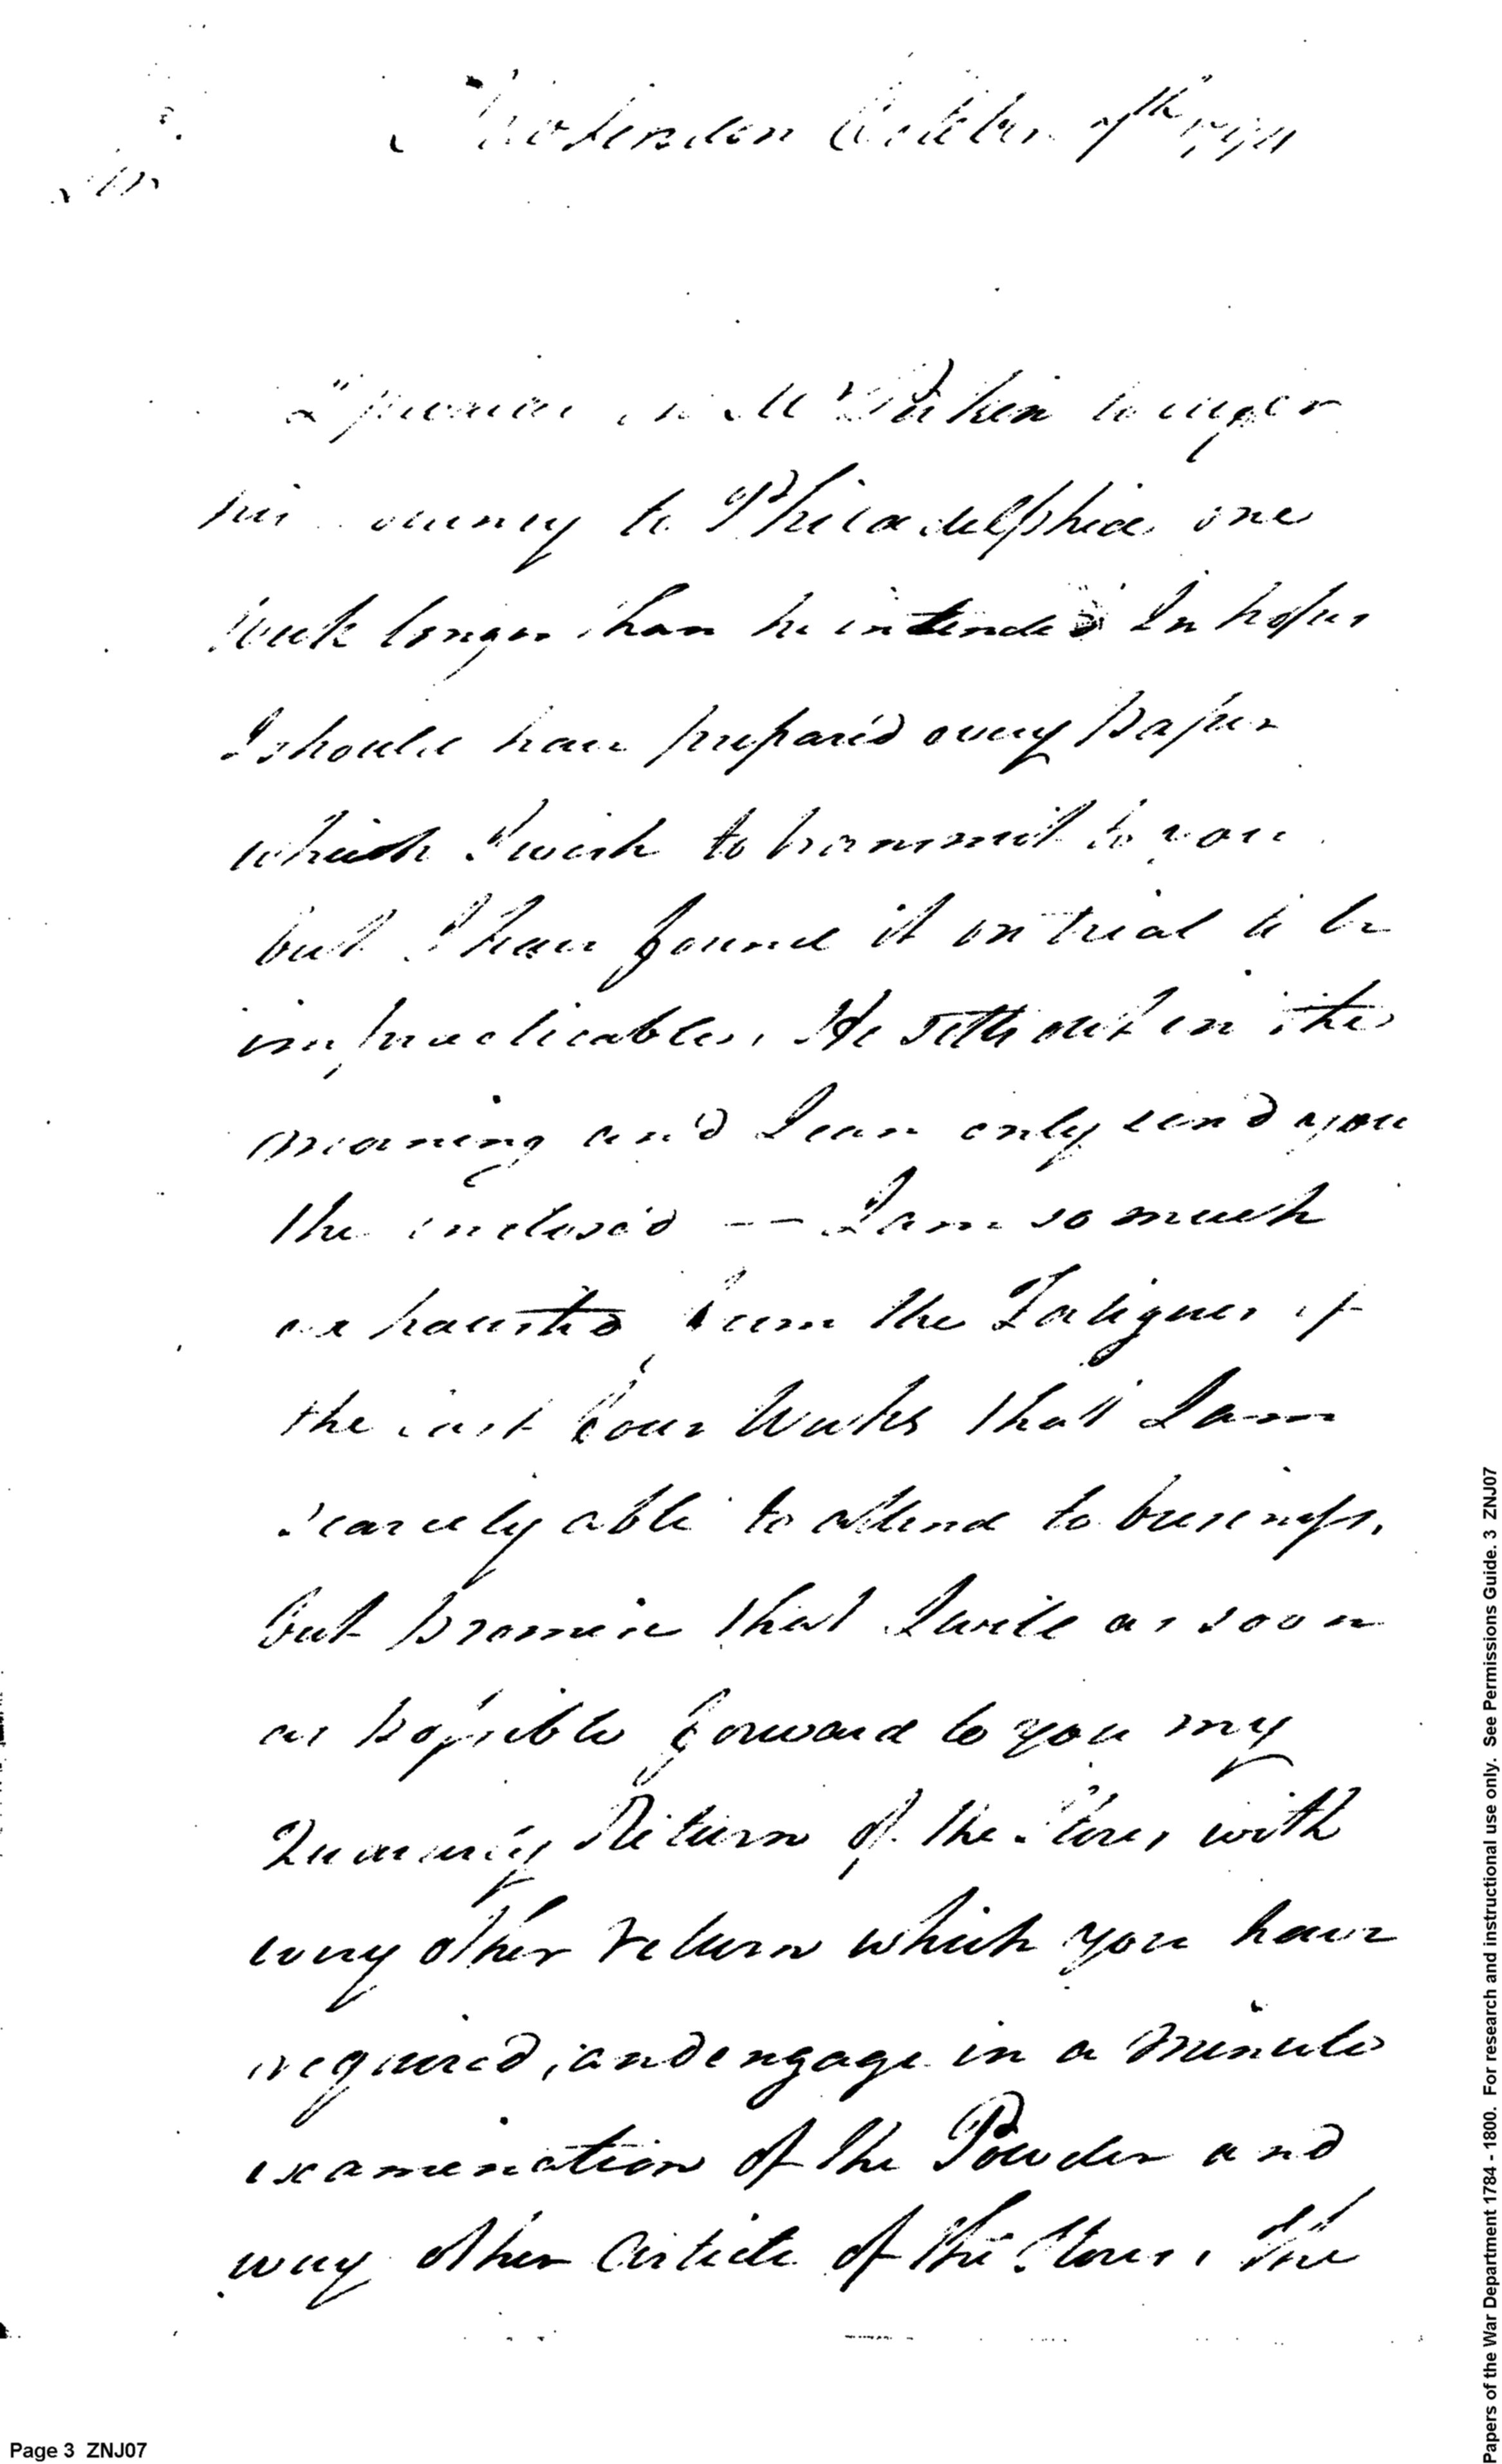 October 7th 1794
Sir
his to Philadelphia one
Week longer than he intended In hopes
I should have prepared every paper
which I wish to transmit to you
but I have found it on trial to be
impracticable, He setts out in the
morning and I can only send you
the inclos'd -- I am so much
exhausted from the Fatigues of
the last four Weeks that I am
scarcely able to attend to business,
but promise that I will as soon
as possible forward to you my
Return of the Stores with
every other return which you have
required, and engage in a minute
examination of the Powder and
every other Article of the Stores, the
Page 3 ZNJ07
Papers of the War Department 1784 - 1800. For research and instructional use only. See Permissions Guide. 3 ZNJ07